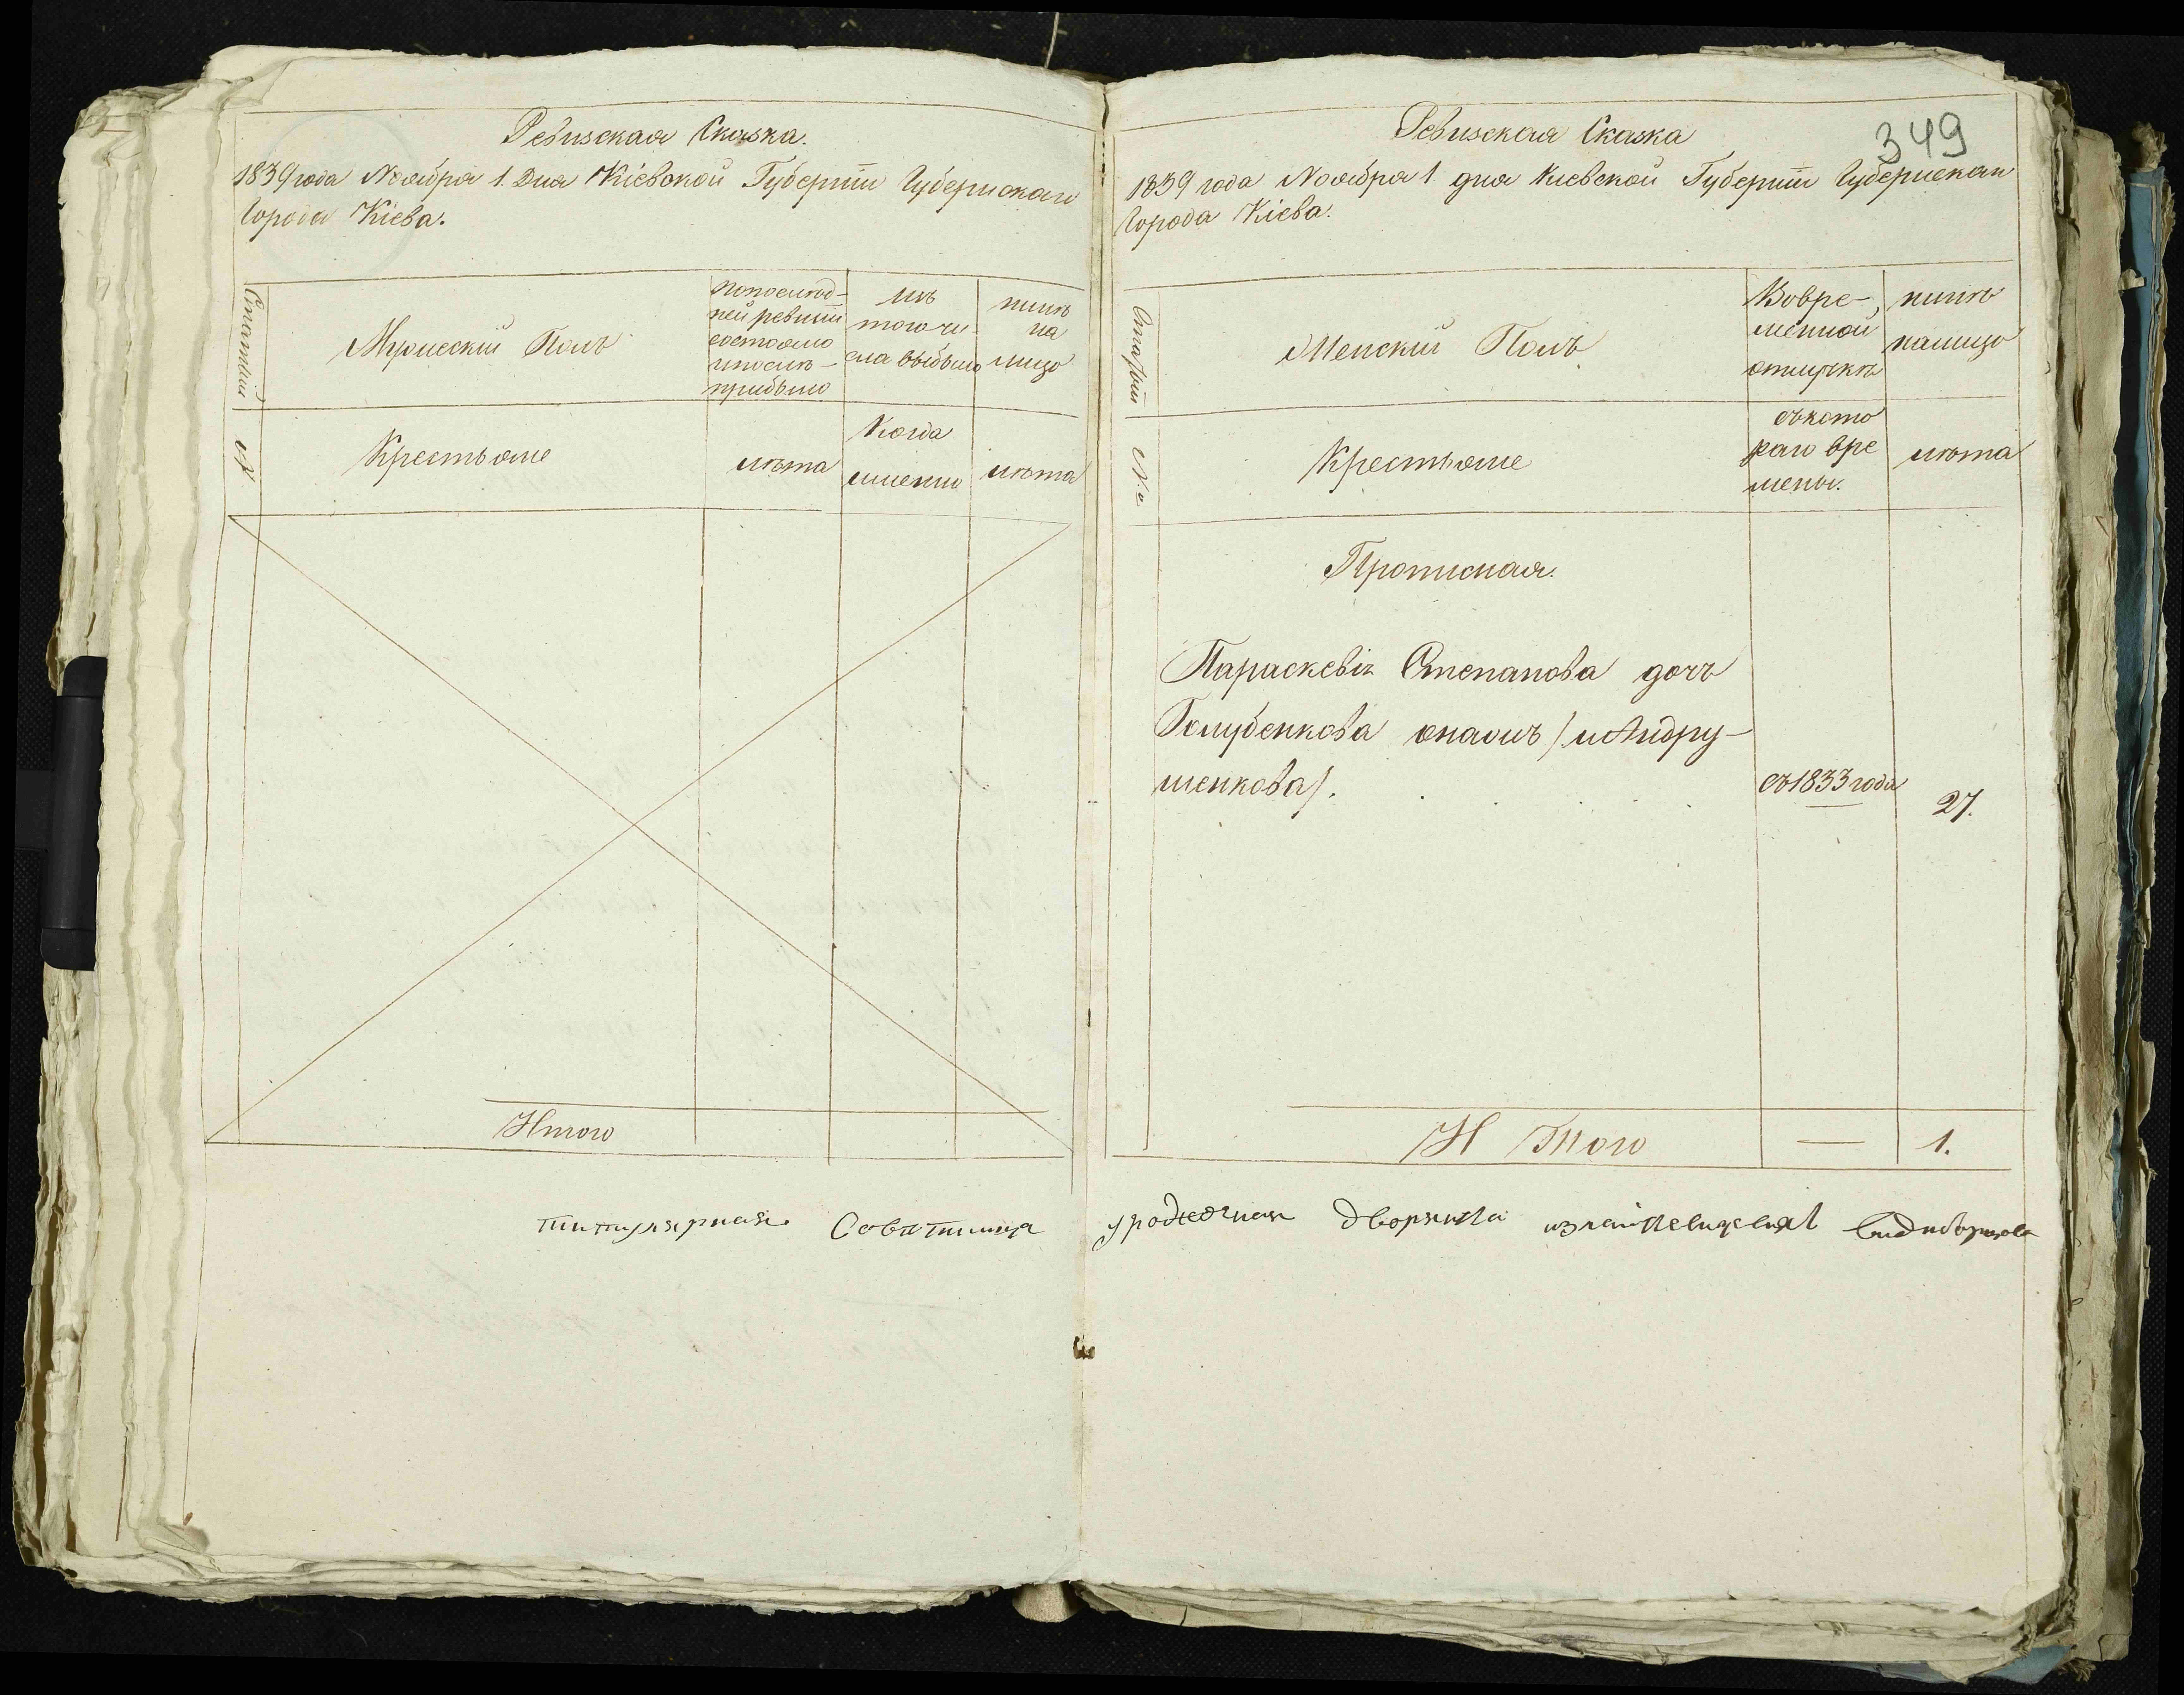 Ревизская Сказка.
1839 года Ноября 1. Дня Кіевской Губерніи Губернскаго
Города Кіева.
Мужескій Полъ
По послѣд-
ней ревизіи
состояло
и послѣ-
прибыло
изъ
того чи-
сла выбыло
нынѣ
на
лицо
№
Крестьяне
лѣта
Когда
именно
лѣта
Итого
349
Ревизская Сказка
1839 года Ноября 1 дня Киевской Губерніи Губернскаго
Города Кіева.
Женскій Полъ
Вовре-
менной
отлучкѣ
нынѣ
налицо
№
Крестьяне
съкото
раго вре
мены.
лѣта
Прописная.
Параскевія Степанова дочь
Голубенкова онажъ /и Андру-
шенкова/.
съ 1833 года
27.
И Того — 1.
титулярная Советница урожденная дворянка